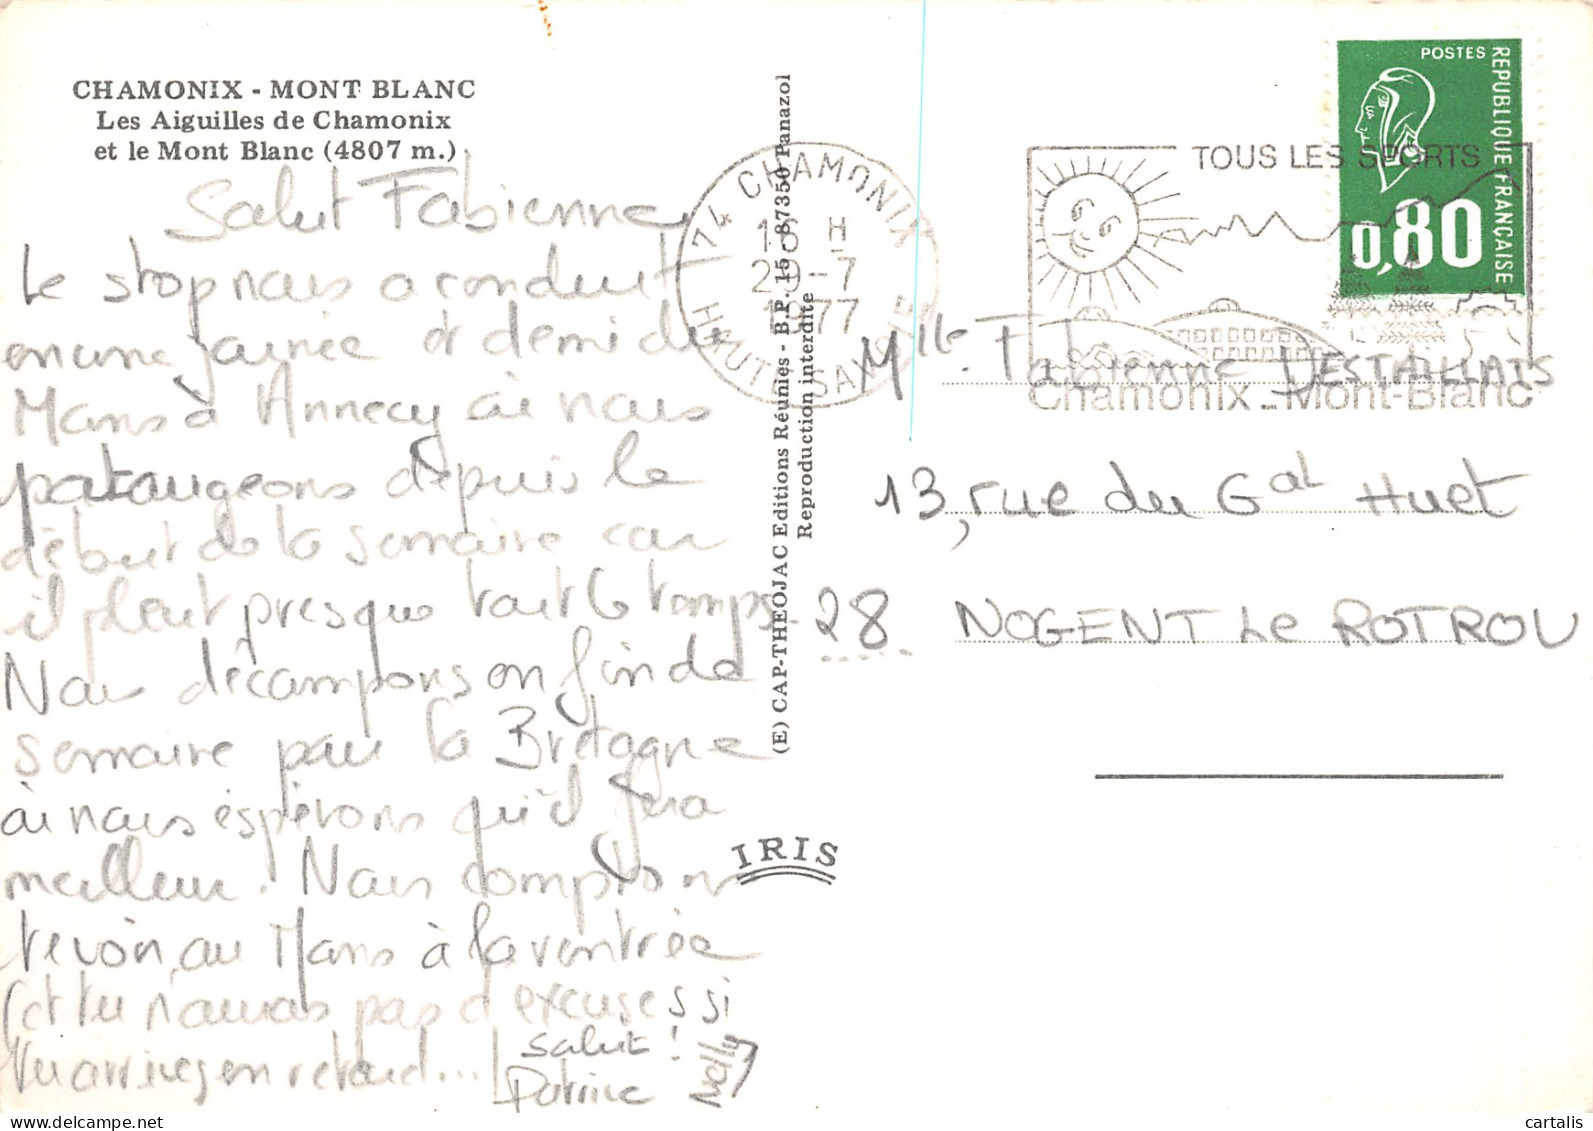 CHAMONIX - MONT BLANC
Les Aiguilles de Chamonix
et le Mont Blanc (4807 m.)
Salut Fabienne
Le stop nous a conduit
en une journée et demi du
Mans à Annecy où nous
pataugeons depuis le
début de la semaine car
il pleut presque tout le temps.
Nous décampons en fin de
semaine pour la Bretagne
où nous espérons qu'il fera
meilleur. Nous comptons
te voir au Mans à la rentrée
(et tu n'auras pas d'excuses si
tu arrives en retard...)
Salut !
Patrice
Nelly
(E) CAP-THEOJAC Editions Réunies - B.P. 15 - 87350 Panazol
Reproduction interdite
IRIS
74 CHAMONIX
16 H
29-7
1977
HAUTE SAVOIE
TOUS LES SPORTS
Chamonix - Mont-Blanc
POSTES
REPUBLIQUE FRANÇAISE
0,80
Mlle Fabienne DESTAILLATS
13, rue du Gal Huet
28 NOGENT Le ROTROU
cartalis